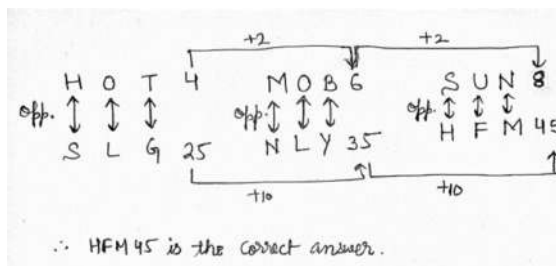 +2 +2
H O T 4 M O B 6 S U N 8
opp. opp. opp.
S L G 25 N L Y 35 H F M 45
+10 +10
∴ HFM 45 is the correct answer.